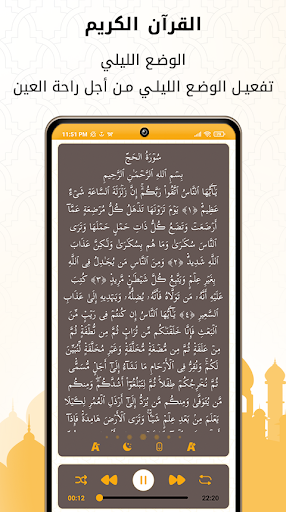 القرآن الكريم
الوضع الليلي
تفعيل الوضع الليلي من أجل راحة العين
11:51 PM
سُورَةُ الحَجِّ
بِسْمِ اللَّهِ الرَّحْمَٰنِ الرَّحِيمِ
يَٰٓأَيُّهَا ٱلنَّاسُ ٱتَّقُوا۟ رَبَّكُمْ ۚ إِنَّ زَلْزَلَةَ ٱلسَّاعَةِ شَىْءٌ
عَظِيمٌ ﴿١﴾ يَوْمَ تَرَوْنَهَا تَذْهَلُ كُلُّ مُرْضِعَةٍ عَمَّآ
أَرْضَعَتْ وَتَضَعُ كُلُّ ذَاتِ حَمْلٍ حَمْلَهَا وَتَرَى
ٱلنَّاسَ سُكَٰرَىٰ وَمَا هُم بِسُكَٰرَىٰ وَلَٰكِنَّ عَذَابَ
ٱللَّهِ شَدِيدٌ ﴿٢﴾ وَمِنَ ٱلنَّاسِ مَن يُجَٰدِلُ فِى ٱللَّهِ
بِغَيْرِ عِلْمٍ وَيَتَّبِعُ كُلَّ شَيْطَٰنٍ مَّرِيدٍ ﴿٣﴾ كُتِبَ
عَلَيْهِ أَنَّهُۥ مَن تَوَلَّاهُ فَأَنَّهُۥ يُضِلُّهُۥ وَيَهْدِيهِ إِلَىٰ عَذَابِ
ٱلسَّعِيرِ ﴿٤﴾ يَٰٓأَيُّهَا ٱلنَّاسُ إِن كُنتُمْ فِى رَيْبٍ مِّنَ
ٱلْبَعْثِ فَإِنَّا خَلَقْنَٰكُم مِّن تُرَابٍ ثُمَّ مِن نُّطْفَةٍ ثُمَّ
مِنْ عَلَقَةٍ ثُمَّ مِن مُّضْغَةٍ مُّخَلَّقَةٍ وَغَيْرِ مُخَلَّقَةٍ لِّنُبَيِّنَ
لَكُمْ ۚ وَنُقِرُّ فِى ٱلْأَرْحَامِ مَا نَشَآءُ إِلَىٰٓ أَجَلٍ مُّسَمًّى
ثُمَّ نُخْرِجُكُمْ طِفْلًا ثُمَّ لِتَبْلُغُوٓا۟ أَشُدَّكُمْ ۖ وَمِنكُم
مَّن يُتَوَفَّىٰ وَمِنكُم مَّن يُرَدُّ إِلَىٰٓ أَرْذَلِ ٱلْعُمُرِ لِكَيْلَا
يَعْلَمَ مِنۢ بَعْدِ عِلْمٍ شَيْـًٔا ۚ وَتَرَى ٱلْأَرْضَ هَامِدَةً فَإِذَآ
00:12
22:20